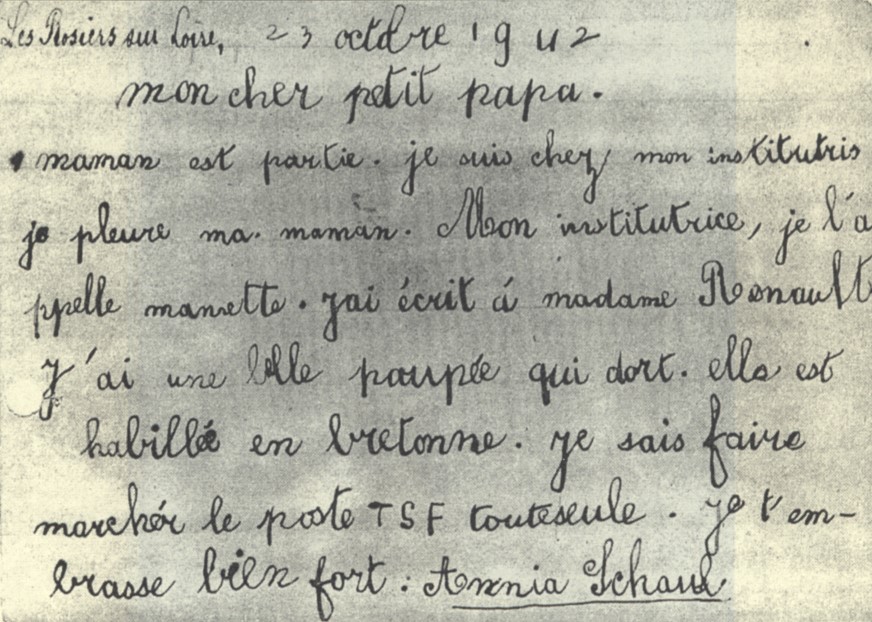 Les Rosiers sur Loire, 23 octobre 1942
mon cher petit papa.
maman est partie. je suis chez mon institutris
je pleure ma. maman. Mon institutrice, je l'a
ppelle manette. jai écrit á madame Renault
J'ai une belle poupée qui dort. elle est
habillée en bretonne. je sais faire
marchér le poste TSF touteseule. je t'em-
brasse bien fort : Annia Schaul